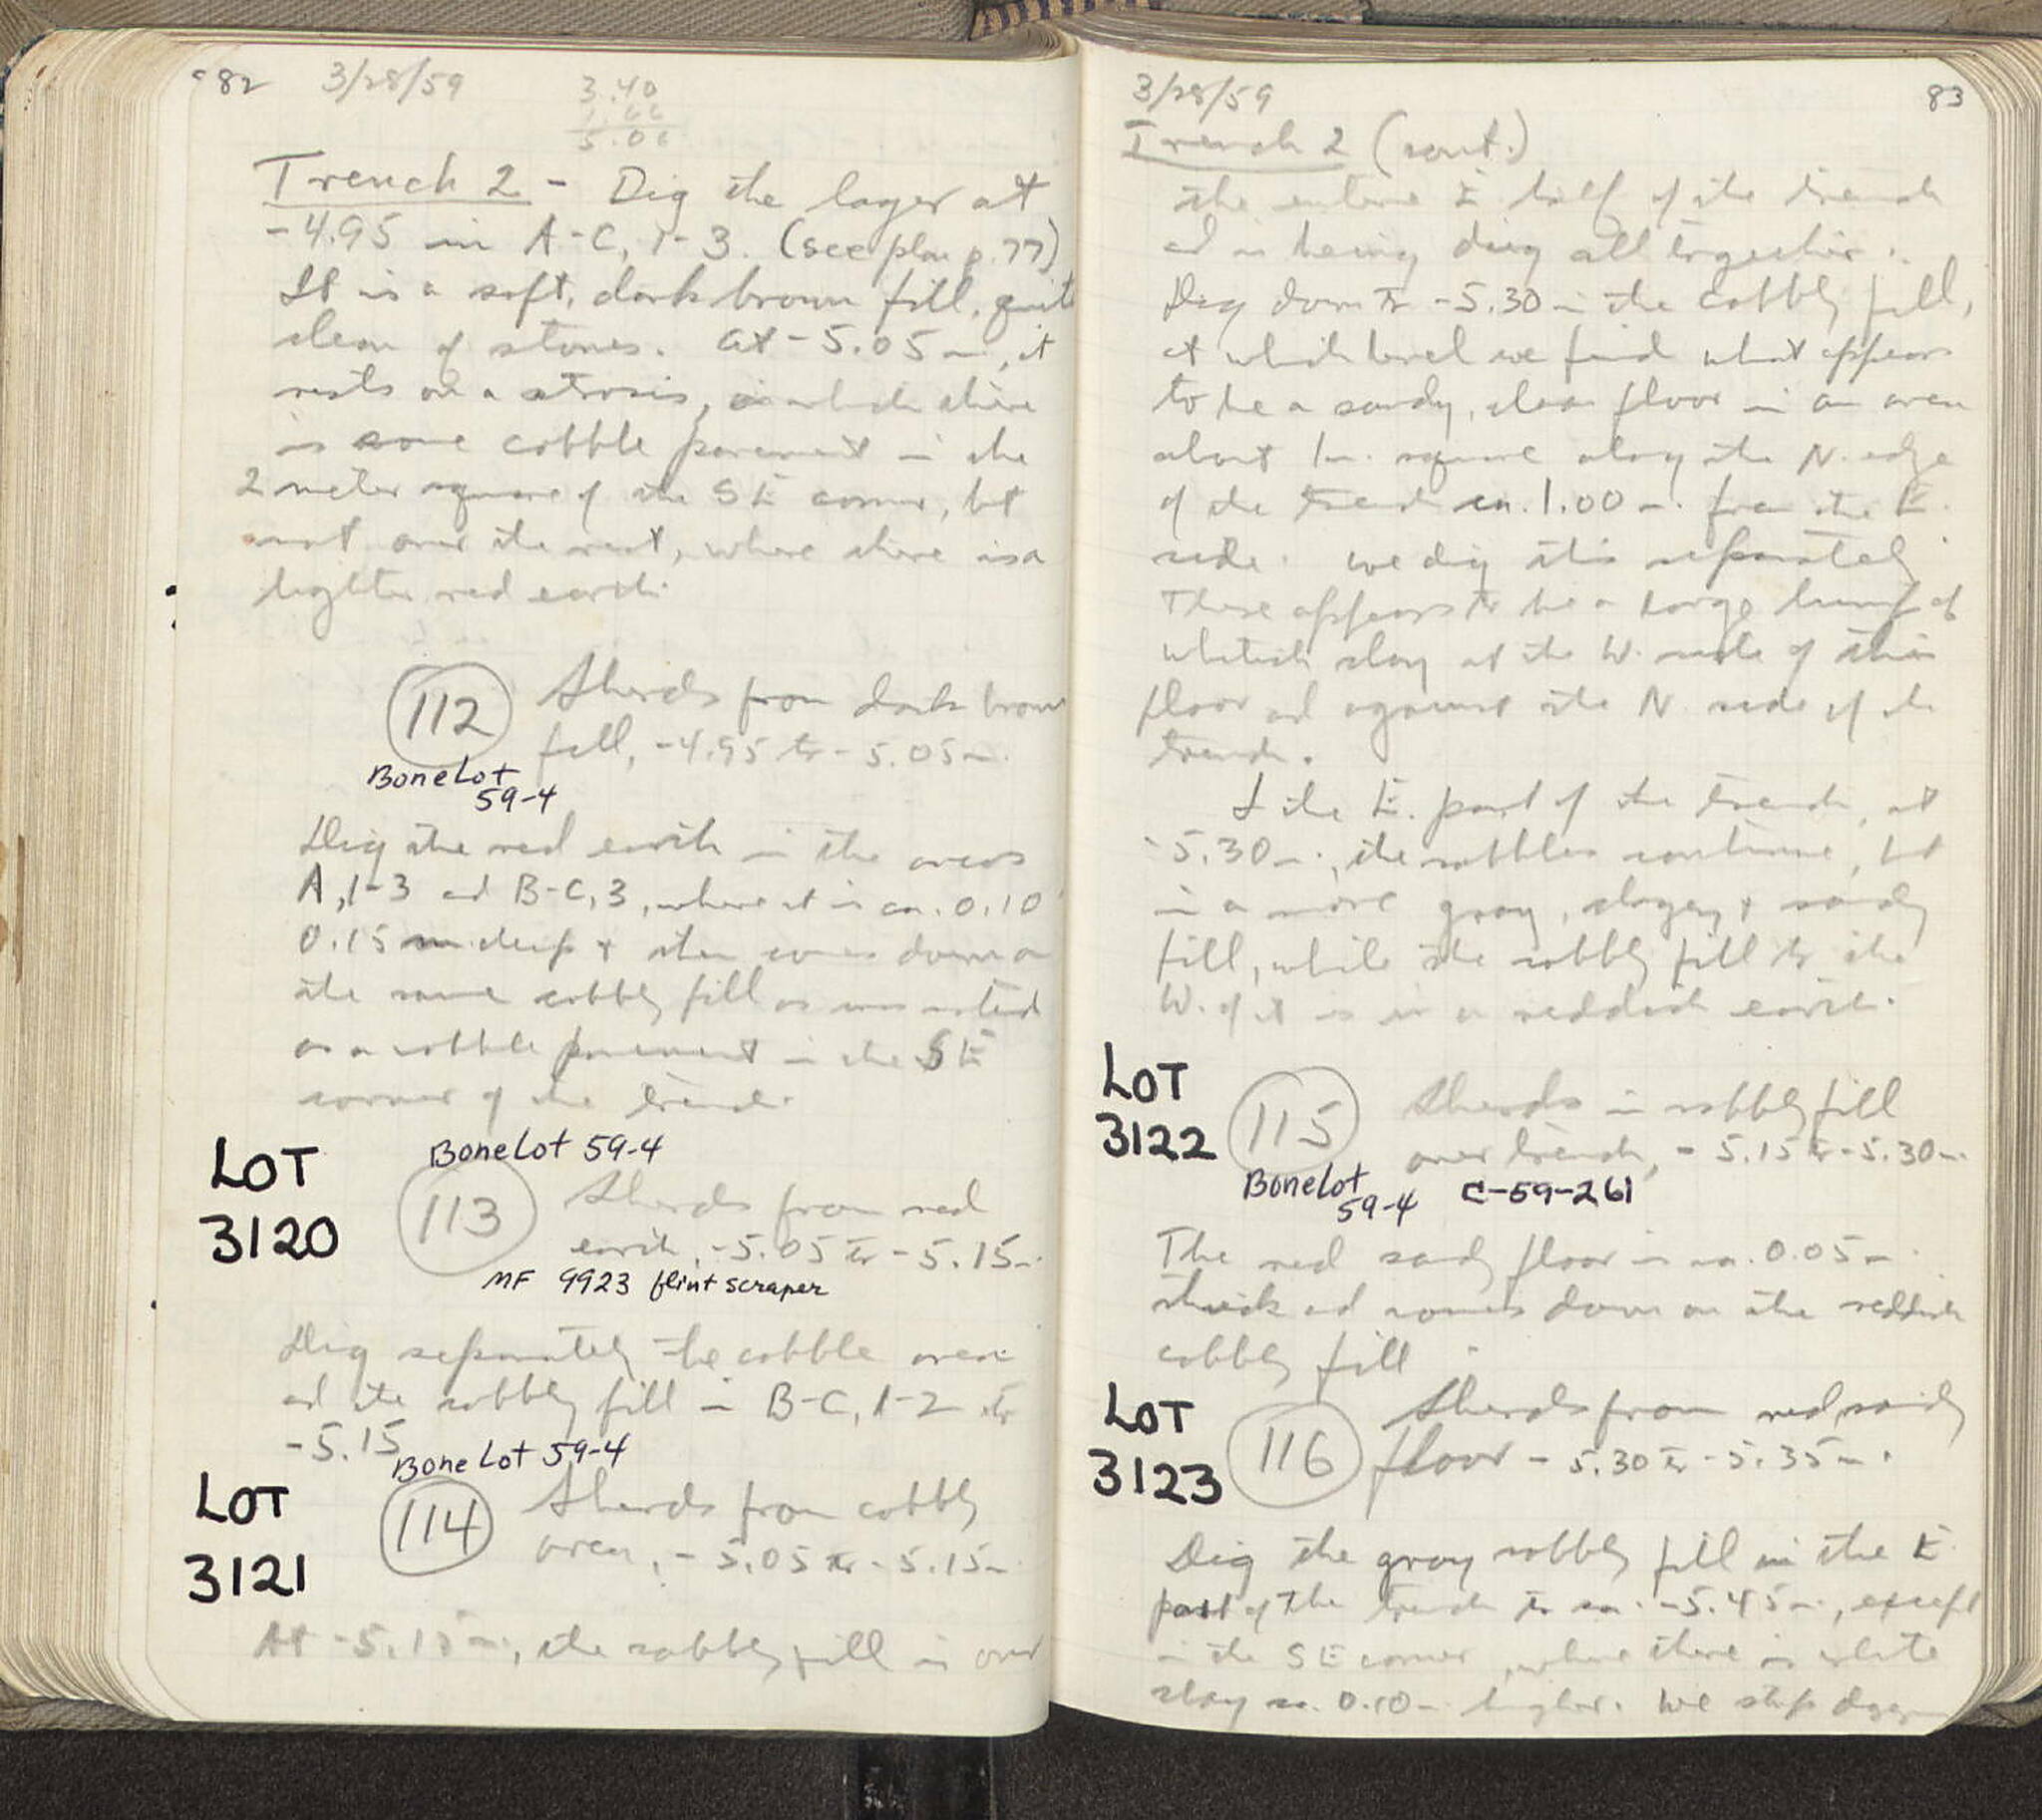 82 3/28/59
3.40
1.66
5.06
Trench 2 - Dig the layer at
-4.95 in A-C, 1-3. (see plan p. 77)
It is a soft, dark brown fill, quite
clean of stones. At -5.05 m, it
rests on a strosis, in which there
is some cobble pavement in the
2 meter square of the SE corner, but
not over the rest, where there is a
lighter red earth.
112 Sherds from dark brown
fill, -4.95 to -5.05 m.
Bone Lot
59-4
Dig the red earth in the areas
A, 1-3 and B-C, 3, where it is ca. 0.10
0.15 m deep & then comes down on
the same cobbly fill as was noted
as a cobble pavement in the SE
corner of the trench.
Bone Lot 59-4
LOT
3120
113 Sherds from red
earth, -5.05 to -5.15 m.
MF 9923 flint scraper
Dig separately the cobble area
and the cobbly fill in B-C, 1-2 to
-5.15
Bone Lot 59-4
LOT
3121
114 Sherds from cobbly
area, -5.05 to -5.15 m
At -5.15 m, the cobbly fill is over
3/28/59 83
Trench 2 (cont.)
the entire E half of the trench
and is being dug all together.
Dig down to -5.30 in the cobbly fill,
at which level we find what appears
to be a sandy, clean floor in an area
about 1 m. square along the N. edge
of the trench ca. 1.00 m. from the E.
side. We dig this separately
There appears to be a large lump of
whitish clay at the W. side of this
floor and against the N. side of the
trench.
In the E. part of the trench, at
-5.30 m., the cobbles continue, but
in a more gray, clayey & sandy
fill, while the cobbly fill to the
W. of it is in a reddish earth.
LOT
3122
115 Sherds in cobbly fill
over trench, -5.15 to -5.30 m.
Bone Lot
59-4 C-59-261
The red sandy floor is ca. 0.05 m
thick and comes down on the reddish
cobbly fill.
LOT
3123
116 Sherds from red sandy
floor -5.30 to -5.35 m.
Dig the gray cobbly fill in the E
part of the trench to ca. -5.45 m., except
in the SE corner, where there is white
clay ca. 0.10 m higher. We stop